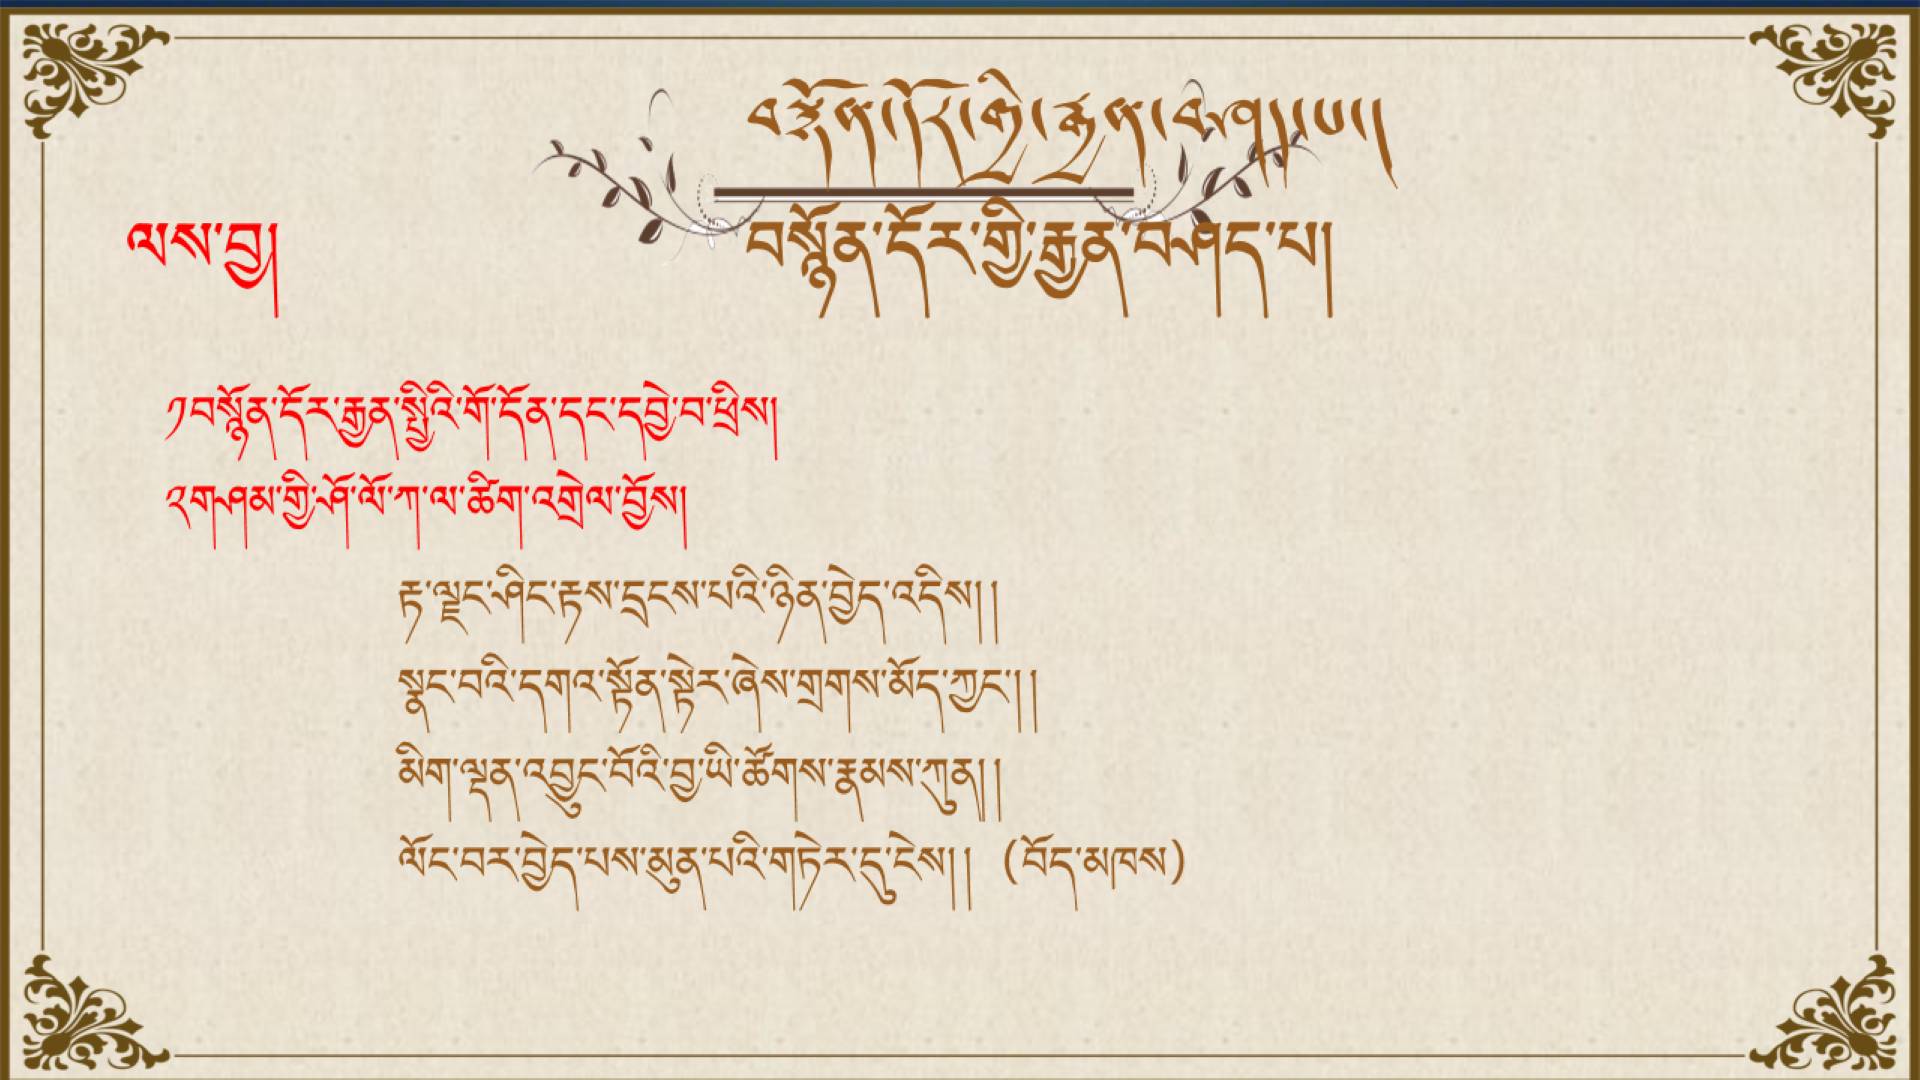 བསྙོན་དོར་གྱི་རྒྱན་བཤད་པ།
ལས་བྱ།
༡བསྙོན་དོར་རྒྱན་སྤྱིའི་གོ་དོན་དང་དབྱེ་བ་ཕྲིས།
༢གཤམ་གྱི་ཤོ་ལོ་ཀ་ལ་ཚིག་འགྲེལ་བྱོས།
རྟ་ལྗང་ཤིང་རྟས་དྲངས་པའི་ཉིན་བྱེད་འདིས།།
སྣང་བའི་དགའ་སྟོན་སྟེར་ཞེས་གྲགས་མོད་ཀྱང་།།
མིག་ལྡན་འབྱུང་བོའི་བྱ་ཡི་ཚོགས་རྣམས་ཀུན།།
ལོང་བར་བྱེད་པས་མུན་པའི་གཏེར་དུ་ངེས།། (བོད་མཁས)